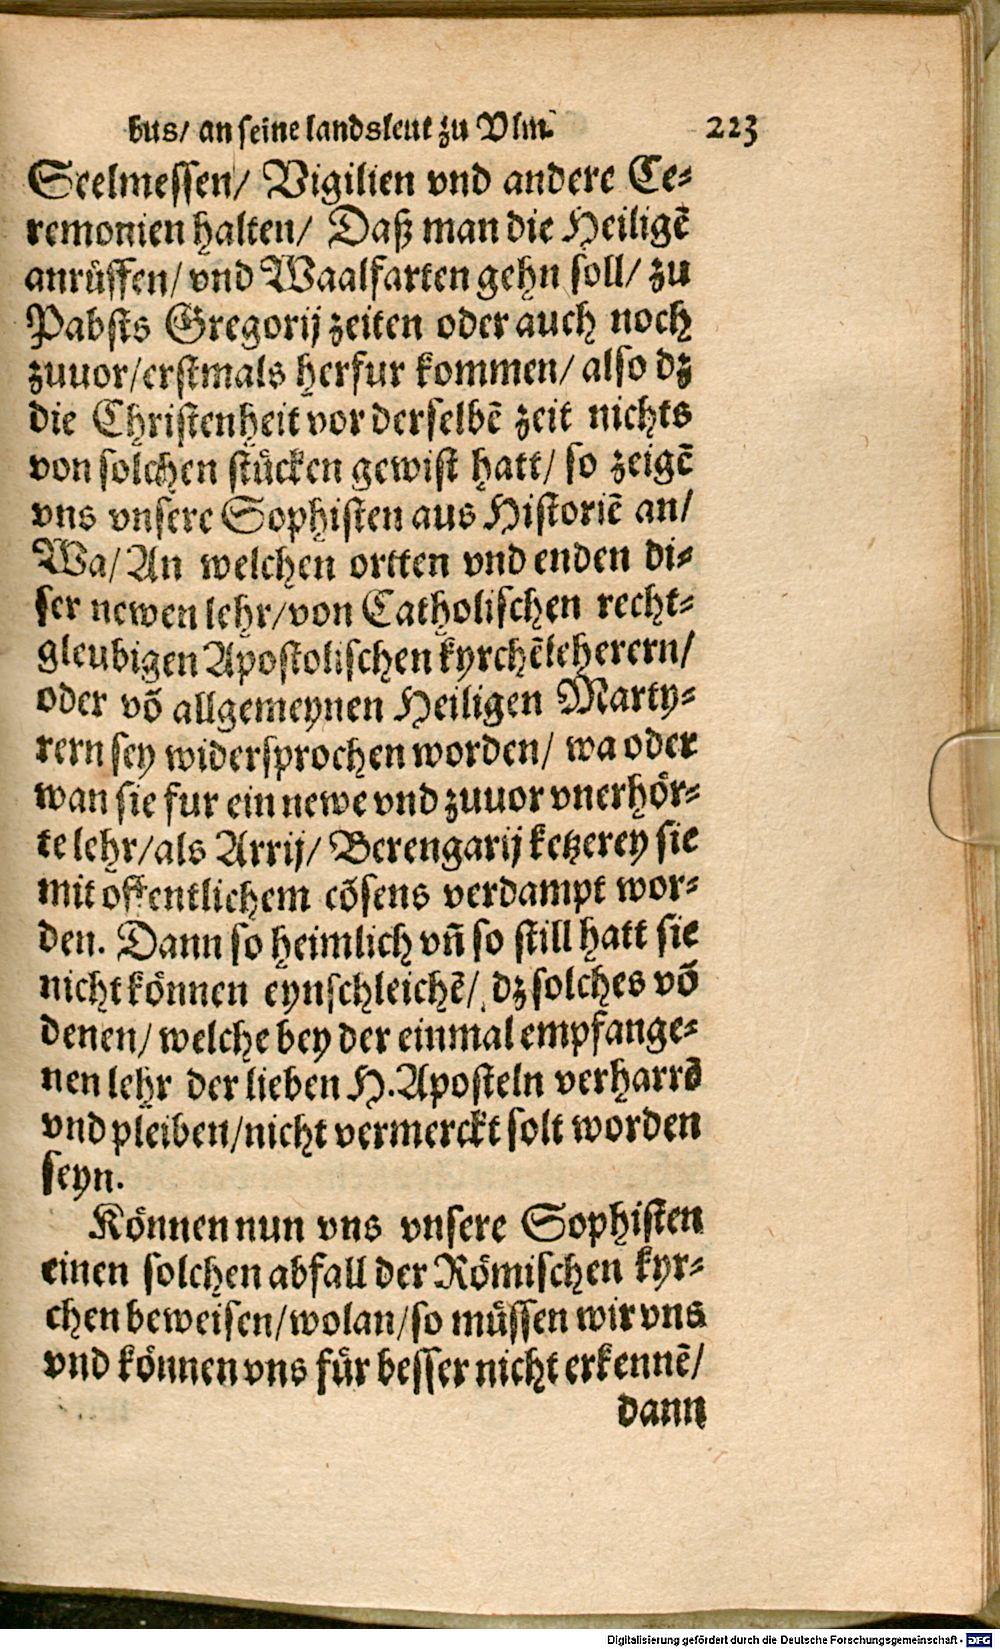 bus/ an seine landsleut zu Vlm. 223
Seelmessen/ Vigilien vnd andere Ce⸗
remonien halten/ Daß man die Heiligẽ
anrůffen/ vnd Waalfarten gehn soll/ zu
Pabsts Gregorij zeiten oder auch noch
zuuor/erstmals herfur kommen/ also dz
die Christenheit vor derselbẽ zeit nichts
von solchen stůcken gewist hatt/ so zeigẽ
vns vnsere Sophisten aus Historiẽ an/
Wa/ An welchen ortten vnd enden di⸗
ser newen lehr/von Catholischen recht⸗
gleubigen Apostolischen kyrchẽleherern/
oder võ allgemeynen Heiligen Marty⸗
rern sey widersprochen worden/ wa oder
wan sie fur ein newe vnd zuuor vnerhör⸗
te lehr/als Arrij/ Berengarij ketzerey sie
mit offentlichem cõsens verdampt wor⸗
den. Dann so heimlich vñ so still hatt sie
nicht können eynschleichẽ/ dz solches võ
denen/ welche bey der einmal empfange⸗
nen lehr der lieben H. Aposteln verharrẽ
vnd pleiben/nicht vermerckt solt worden
seyn.
Können nun vns vnsere Sophisten
einen solchen abfall der Römischen kyr⸗
chen beweisen/wolan/so můssen wir vns
vnd können vns fůr besser nicht erkennẽ/
dann
Digitalisierung gefördert durch die Deutsche Forschungsgemeinschaft - DFG